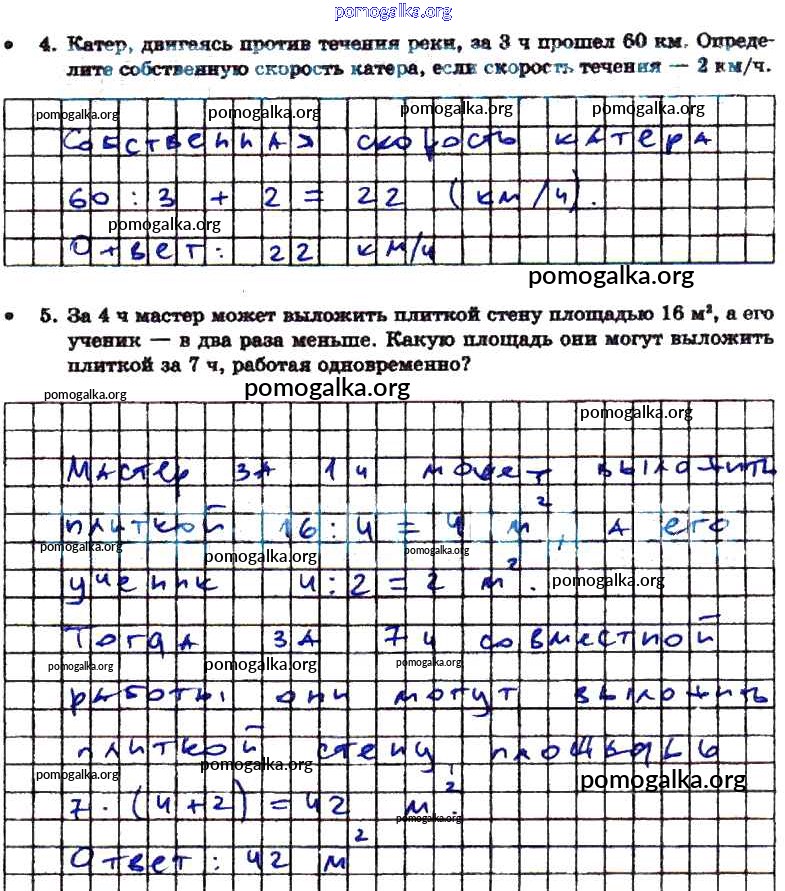 pomogalka.org
• 4. Катер, двигаясь против течения реки, за 3 ч прошел 60 км. Опреде-
лите собственную скорость катера, если скорость течения — 2 км/ч.
pomogalka.org pomogalka.org pomogalka.org pomogalka.org
Собственная скорость катера
60 : 3 + 2 = 22 (км/ч).
pomogalka.org
Ответ: 22 км/ч
pomogalka.org
• 5. За 4 ч мастер может выложить плиткой стену площадью 16 м², а его
ученик — в два раза меньше. Какую площадь они могут выложить
плиткой за 7 ч, работая одновременно?
pomogalka.org pomogalka.org pomogalka.org
Мастер за 1 ч может выложить
плиткой 16 : 4 = 4 м², а его
pomogalka.org pomogalka.org pomogalka.org
ученик 4 : 2 = 2 м².
pomogalka.org
Тогда за 7 ч совместной
pomogalka.org pomogalka.org pomogalka.org
работы они могут выложить
плиткой стену площадью
pomogalka.org pomogalka.org pomogalka.org
7 · (4 + 2) = 42 м².
pomogalka.org
Ответ: 42 м²